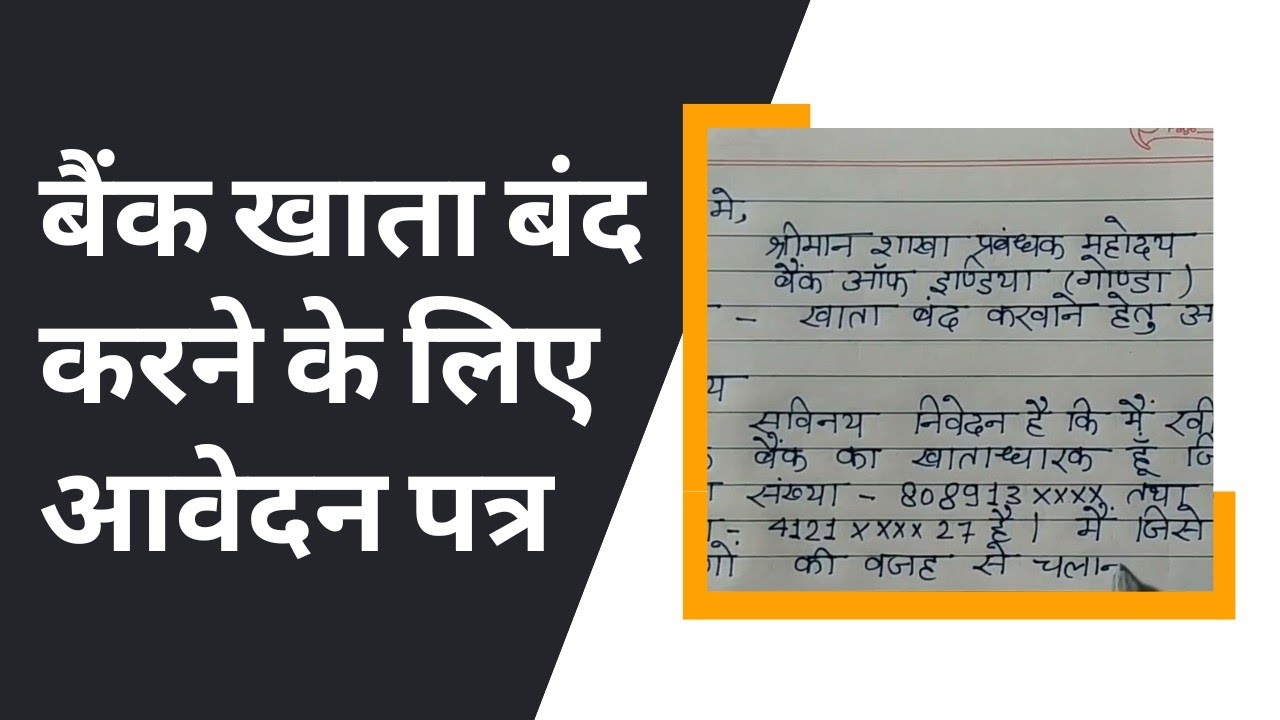 बैंक खाता बंद
करने के लिए
आवेदन पत्र
मे,
श्रीमान शाखा प्रबंधक महोदय
बैंक ऑफ इण्डिया (गोण्डा)
- खाता बंद करवाने हेतु अ
य
सविनय निवेदन है कि मैं रवी
बैंक का खाताधारक हूँ जि
संख्या - 808913xxxx तथा
- 4121xxxx27 है। मैं जिसे
गो की वजह से चलान